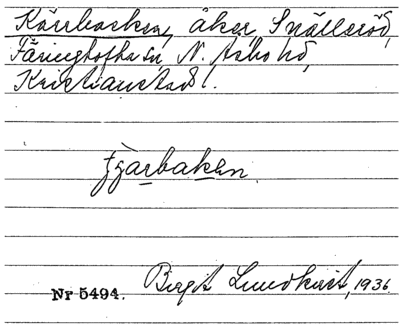 Kärrbacken, åker, Snälleröd,
Färingtofta sn, N. Åsbo hd,
Kristianstads l.
tjärbakɘn.
Nr 5494. Birgit Lundkvist, 1936.